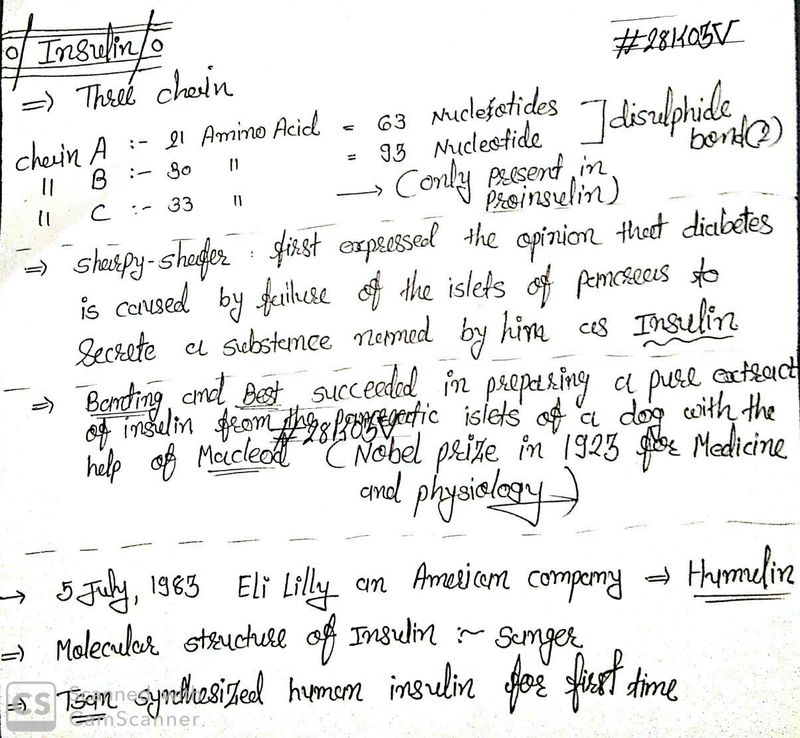 Insulin
#28K03V
⇒ Three chain
chain A :- 21 Amino Acid = 63 Nucleotides ] disulphide bond(2)
" B :- 30 " = 93 Nucleotide
" C :- 33 " → (only present in proinsulin)
⇒ Sharpy-shafer : first expressed the opinion that diabetes
is caused by failure of the islets of pancreas to
Secrete a substance named by him as Insulin
⇒ Banting and Best succeeded in preparing a pure extract
of insulin from the pancreatic islets of a dog with the
#28K03V
help of Macleod (Nobel prize in 1923 for Medicine
and physiology)
→ 5 July, 1983 Eli Lilly an American company ⇒ Humulin
⇒ Molecular structure of Insulin :- Sanger
⇒ Tsan synthesized human insulin for first time
CS Scanned with
CamScanner